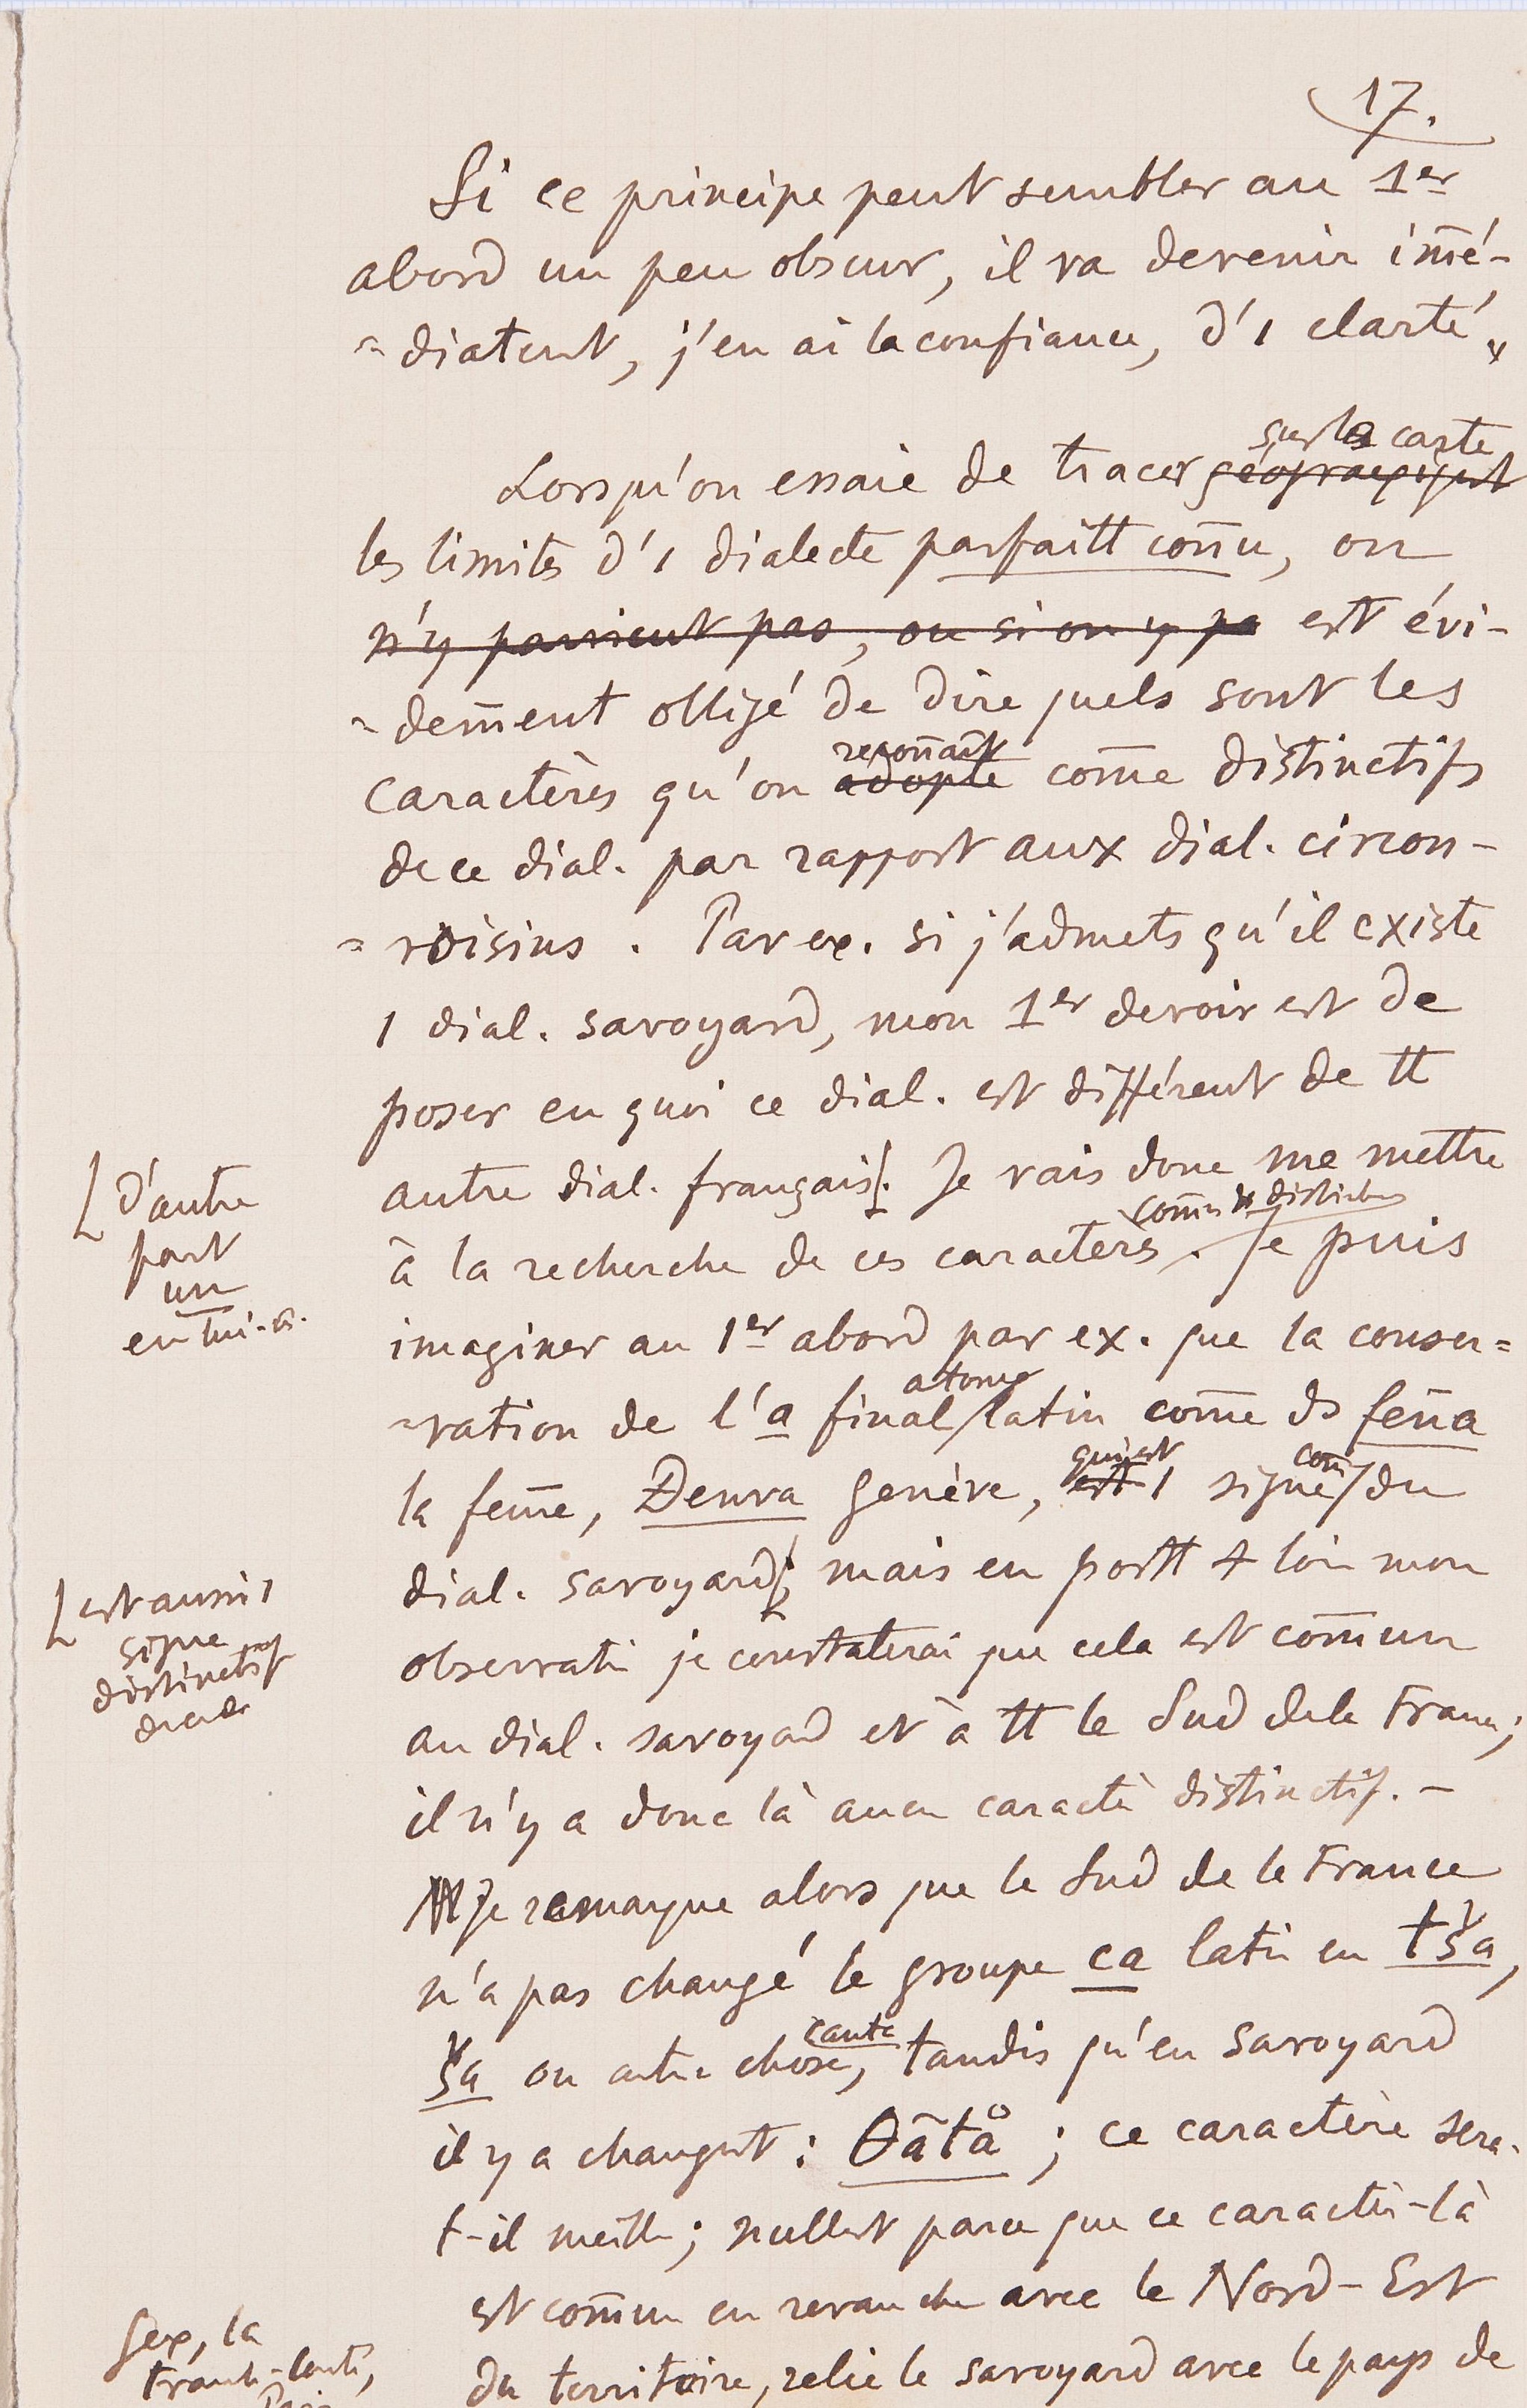 17.
Si ce principe peut sembler au 1er
abord un peu obscur, il va devenir im̄é-
-diatent, j'en ai la confiance, d'1 clarté
sur la carte
Lorsqu'on essaie de tracer géographiqut
les limites d'1 dialecte parfaitt con̄u, on
n'y parvient pas, ou si on y pa est évi-
-dem̄ent obligé de dire quels sont les
recon̄aît
caractères qu'on adopte com̄e distinctifs
de ce dial. par rapport aux dial. circon-
-voisins. Par ex. si j'admets qu'il existe
1 dial. savoyard, mon 1er devoir est de
poser en quoi ce dial. est différent de tt
autre dial. français[. Je vais donc me mettre
[d'autre
part
un
en lui-
à la recherche de ces caractères. Je puis
imaginer au 1er abord par ex. que la conser=
atone
-vation de l'a final/latin com̄e ds fen̄a
qui est
la fem̄e, Đenva Genève, est 1 signe/du
dial. savoyard[; mais en portt + loin mon
[est aussi 1
signe
distinctif
observati je constaterai que cela est com̄un
au dial. savoyard et à tt le Sud de la France;
il n'y a donc là aucu caractè distinctif. -
Je remarque alors que le Sud de la France
n'a pas changé le groupe ca latin en tša,
canta
ša ou autre chose, tandis qu'en savoyard
il y a changnt : θātå ; ce caractère sera-
t-il meill; nullent parce que ce caractèr-là
est com̄un en revanche avec le Nord-Est
du territoire, relie le savoyard avec le pays de
Gex, la
Franche-Comté,